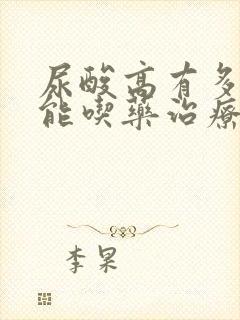 尿酸高有多
能喫藥治療
李杲